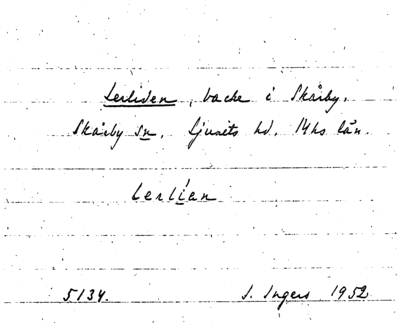 Lerliden, backe i Skårby.
Skårby sn. Ljunits hd. Mhs län.
lerlían
5134. I. Ingers 1952